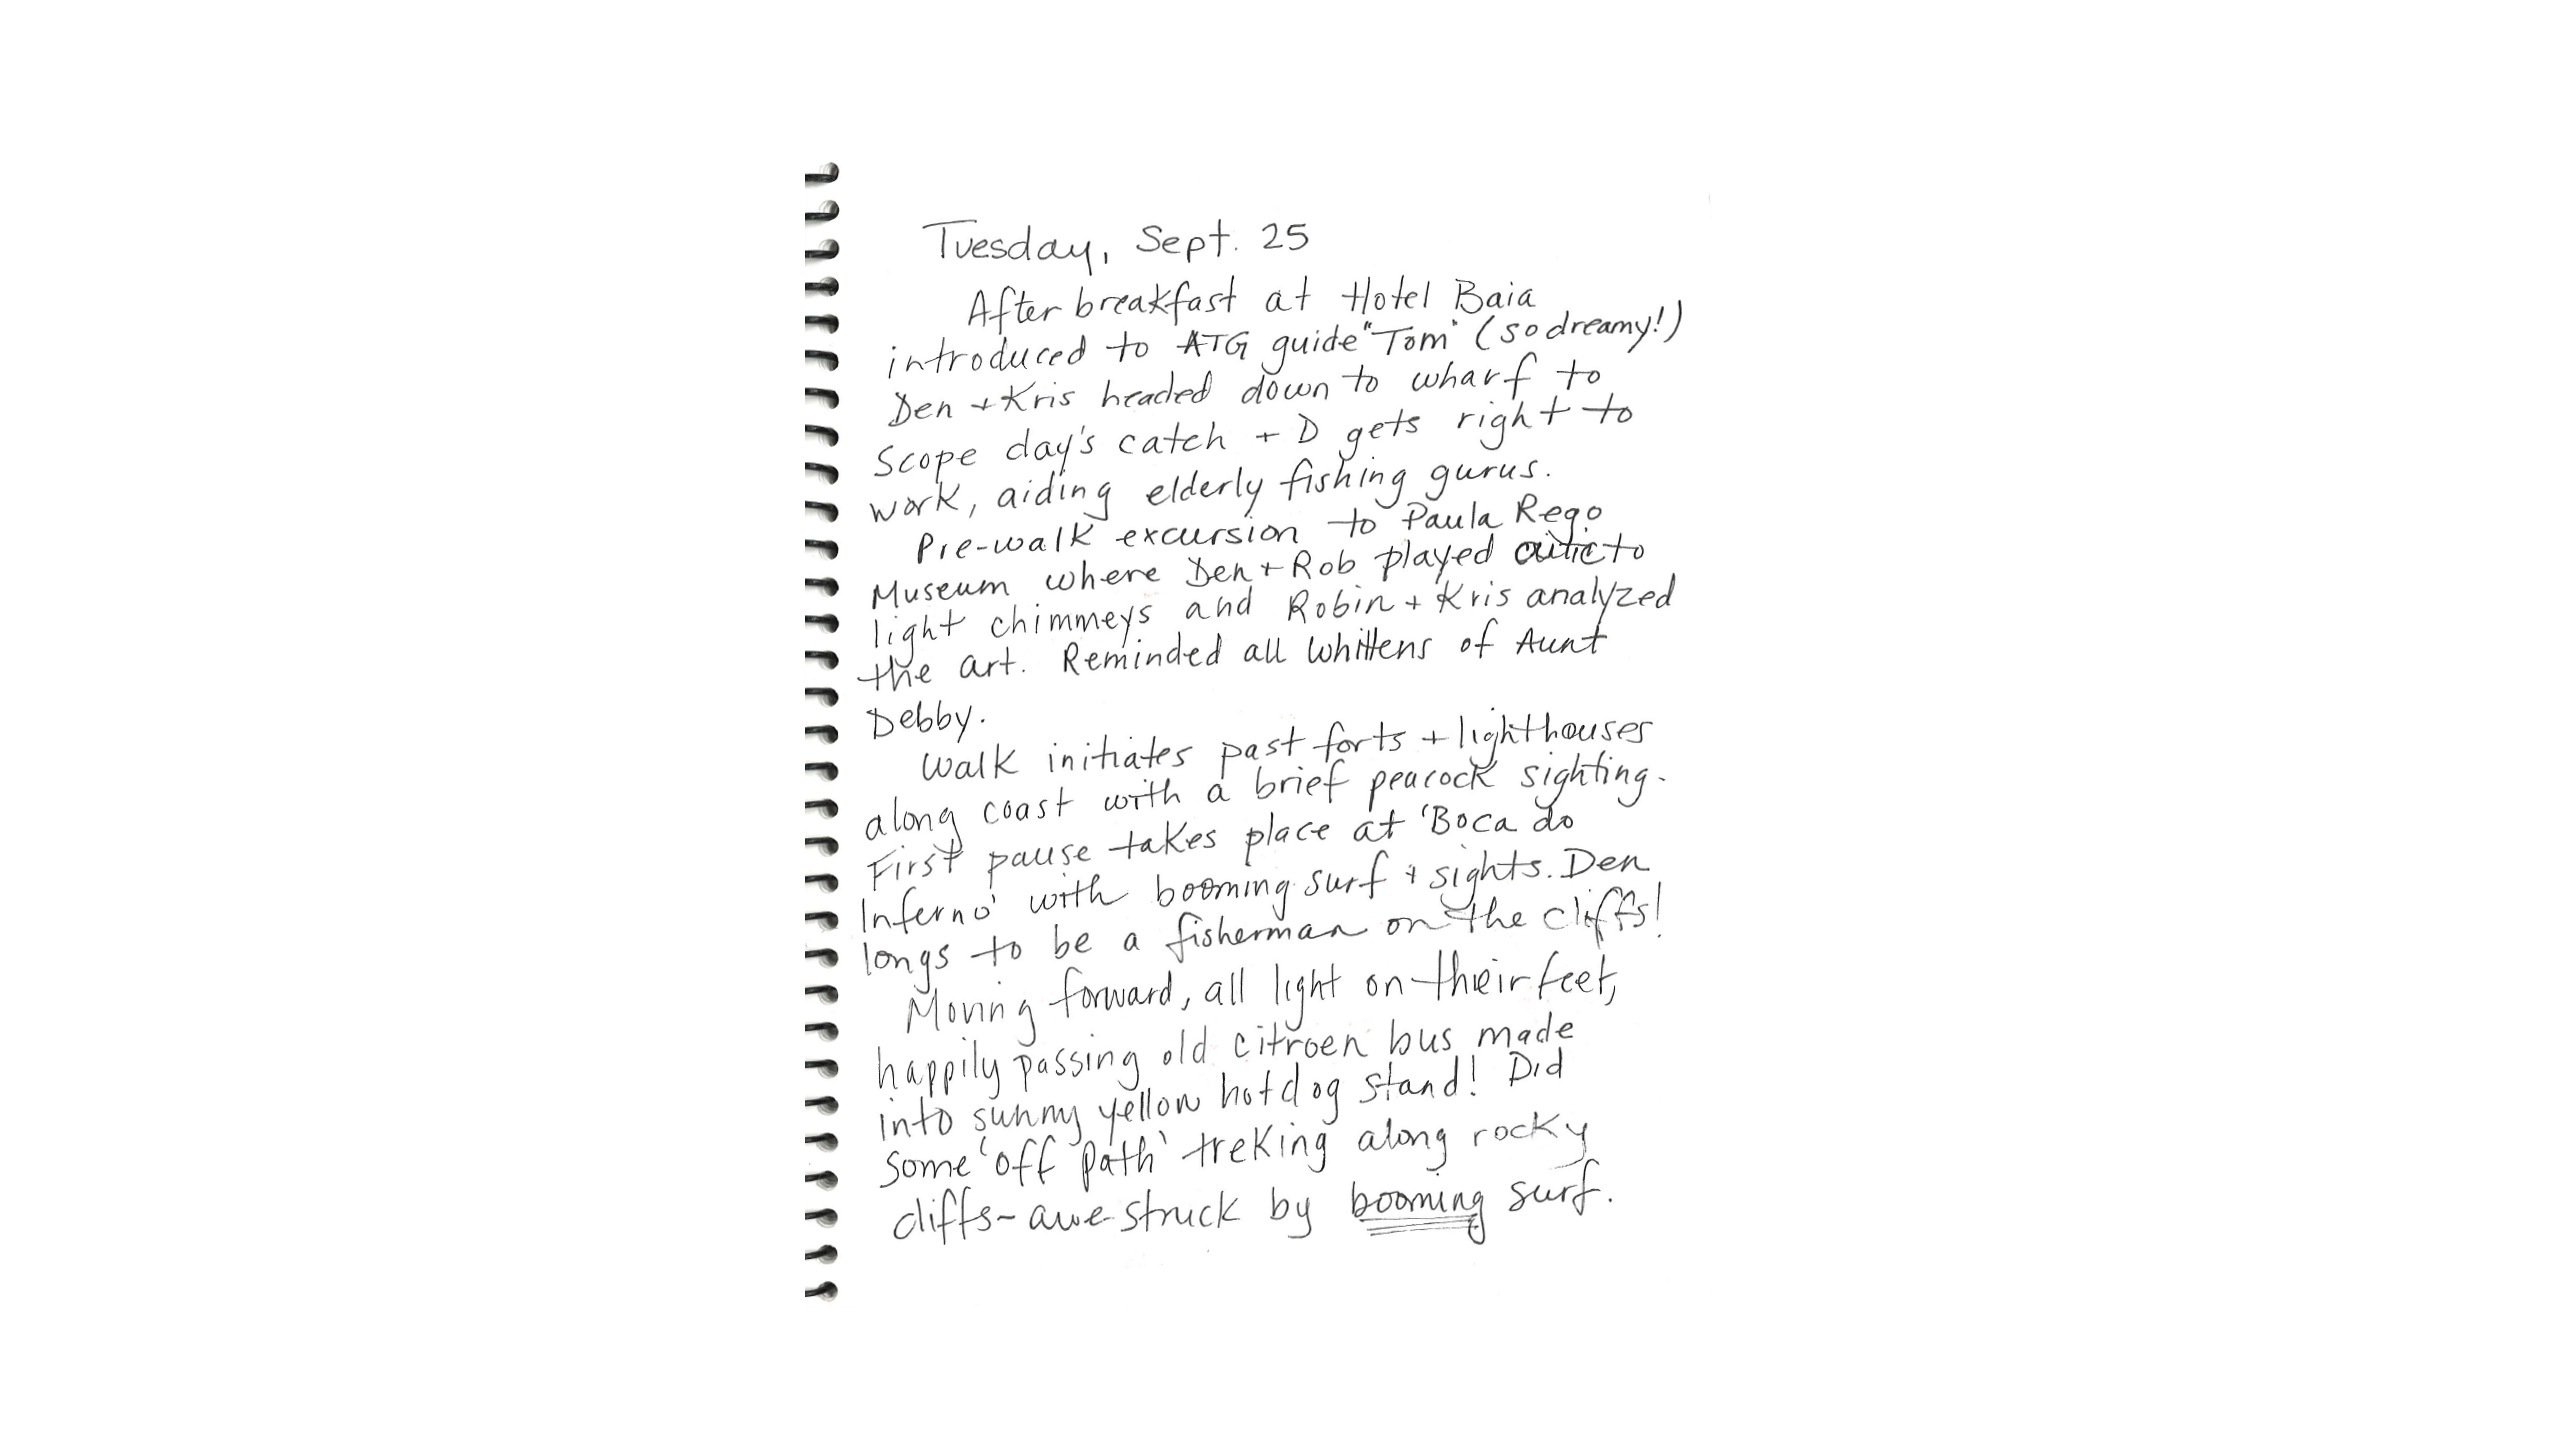 Tuesday, Sept. 25
After breakfast at Hotel Baia
introduced to ATG guide "Tom" (so dreamy!)
Den + Kris headed down to wharf to
scope day's catch + D gets right to
work, aiding elderly fishing gurus.
Pre-walk excursion to Paula Rego
Museum where Den + Rob played critic to
light chimmeys and Robin + Kris analyzed
the art. Reminded all Whittens of Aunt
Debby.
Walk initiates past forts + lighthouses
along coast with a brief peacock sighting.
First pause takes place at 'Boca do
Inferno' with booming surf + sights. Den
longs to be a fisherman on the cliffs!
Moving forward, all light on their feet,
happily passing old citroen bus made
into sunny yellow hotdog stand! Did
some 'off path' treking along rocky
cliffs ~ awe-struck by booming surf.